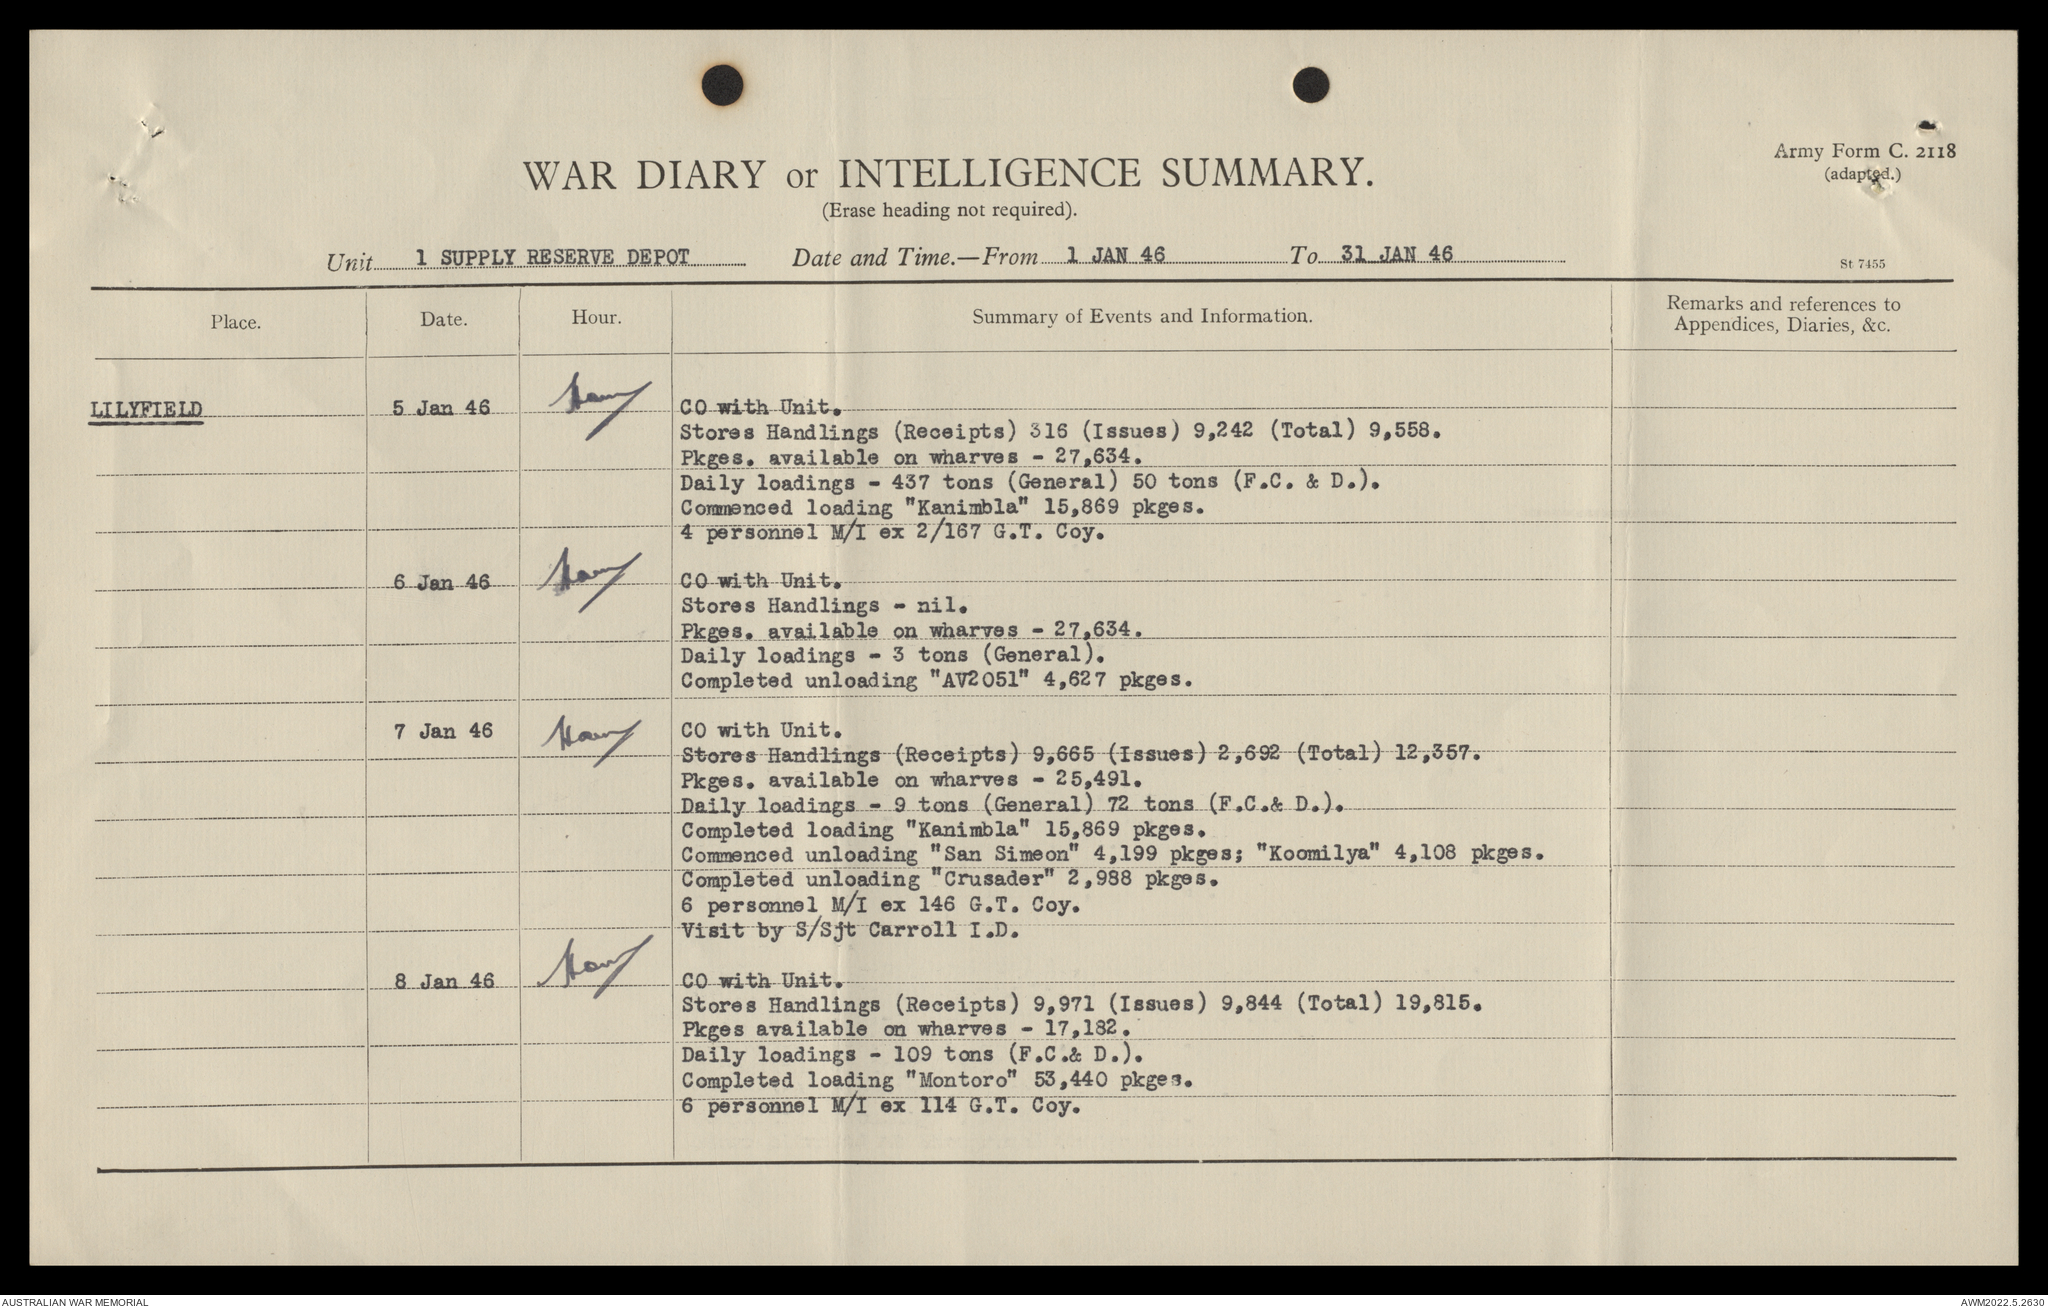 WAR DIARY or INTELLIGENCE SUMMARY.
(Erase heading not required).
Army Form C. 2118
(adapted.)
Unit 1 SUPPLY RESERVE DEPOT Date and Time.—From 1 JAN 46 To 31 JAN 46
St 7455
Place. Date. Hour. Summary of Events and Information. Remarks and references to
Appendices, Diaries, &c.
LILYFIELD 5 Jan 46 CO with Unit.
Stores Handlings (Receipts) 316 (Issues) 9,242 (Total) 9,558.
Pkges. available on wharves - 27,634.
Daily loadings - 437 tons (General) 50 tons (F.C. & D.).
Commenced loading "Kanimbla" 15,869 pkges.
4 personnel M/I ex 2/167 G.T. Coy.
6 Jan 46 CO with Unit.
Stores Handlings - nil.
Pkges. available on wharves - 27,634.
Daily loadings - 3 tons (General).
Completed unloading "AV2051" 4,627 pkges.
7 Jan 46 CO with Unit.
Stores Handlings (Receipts) 9,665 (Issues) 2,692 (Total) 12,357.
Pkges. available on wharves - 25,491.
Daily loadings - 9 tons (General) 72 tons (F.C.& D.).
Completed loading "Kanimbla" 15,869 pkges.
Commenced unloading "San Simeon" 4,199 pkges; "Koomilya" 4,108 pkges.
Completed unloading "Crusader" 2,988 pkges.
6 personnel M/I ex 146 G.T. Coy.
Visit by S/Sjt Carroll I.D.
8 Jan 46 CO with Unit.
Stores Handlings (Receipts) 9,971 (Issues) 9,844 (Total) 19,815.
Pkges available on wharves - 17,182.
Daily loadings - 109 tons (F.C.& D.).
Completed loading "Montoro" 53,440 pkges.
6 personnel M/I ex 114 G.T. Coy.
AUSTRALIAN WAR MEMORIAL
AWM2022.5.2630